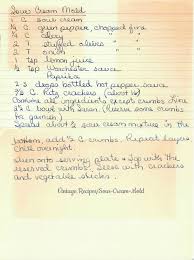 Sour Cream Mold
1 C sour cream
¼ C green pepper chopped fine
¼ C celery " "
2 T stuffed olives " "
3 T onion " "
1 tsp lemon juice
1 tsp Worchester sauce
Paprika
2-3 drops bottled hot pepper sauce
⅔ C. Ritz crackers (about 16)
Combine all ingredients except crumbs. Line
3½ C bowl with Saran. (Reserve some crumbs
to garnish)
Spread about ½ sour cream mixture in the
bottom, add ½ C crumbs. Repeat layers
Chill overnight.
Turn onto serving plate & top with the
reserved crumbs. Serve with crackers
and vegetable sticks.
Vintage.Recipes/Sour-Cream-Mold